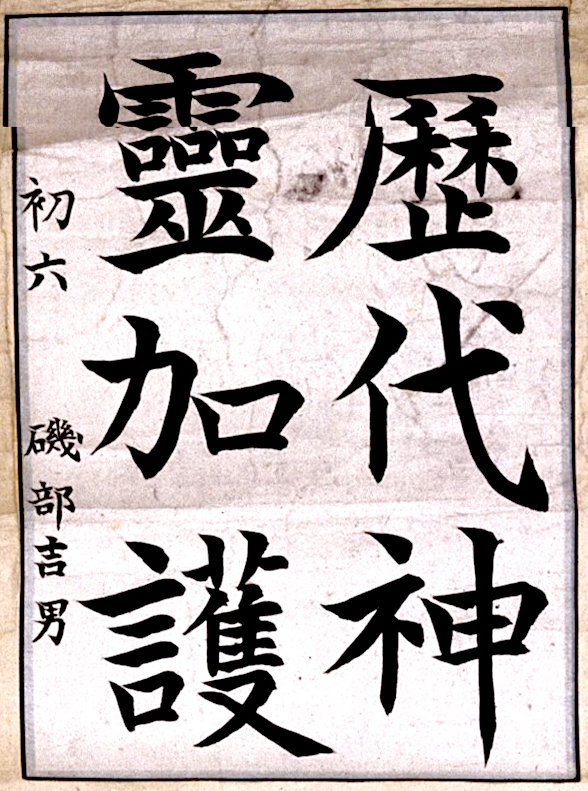 歷代神
靈加護
初六 磯部吉男